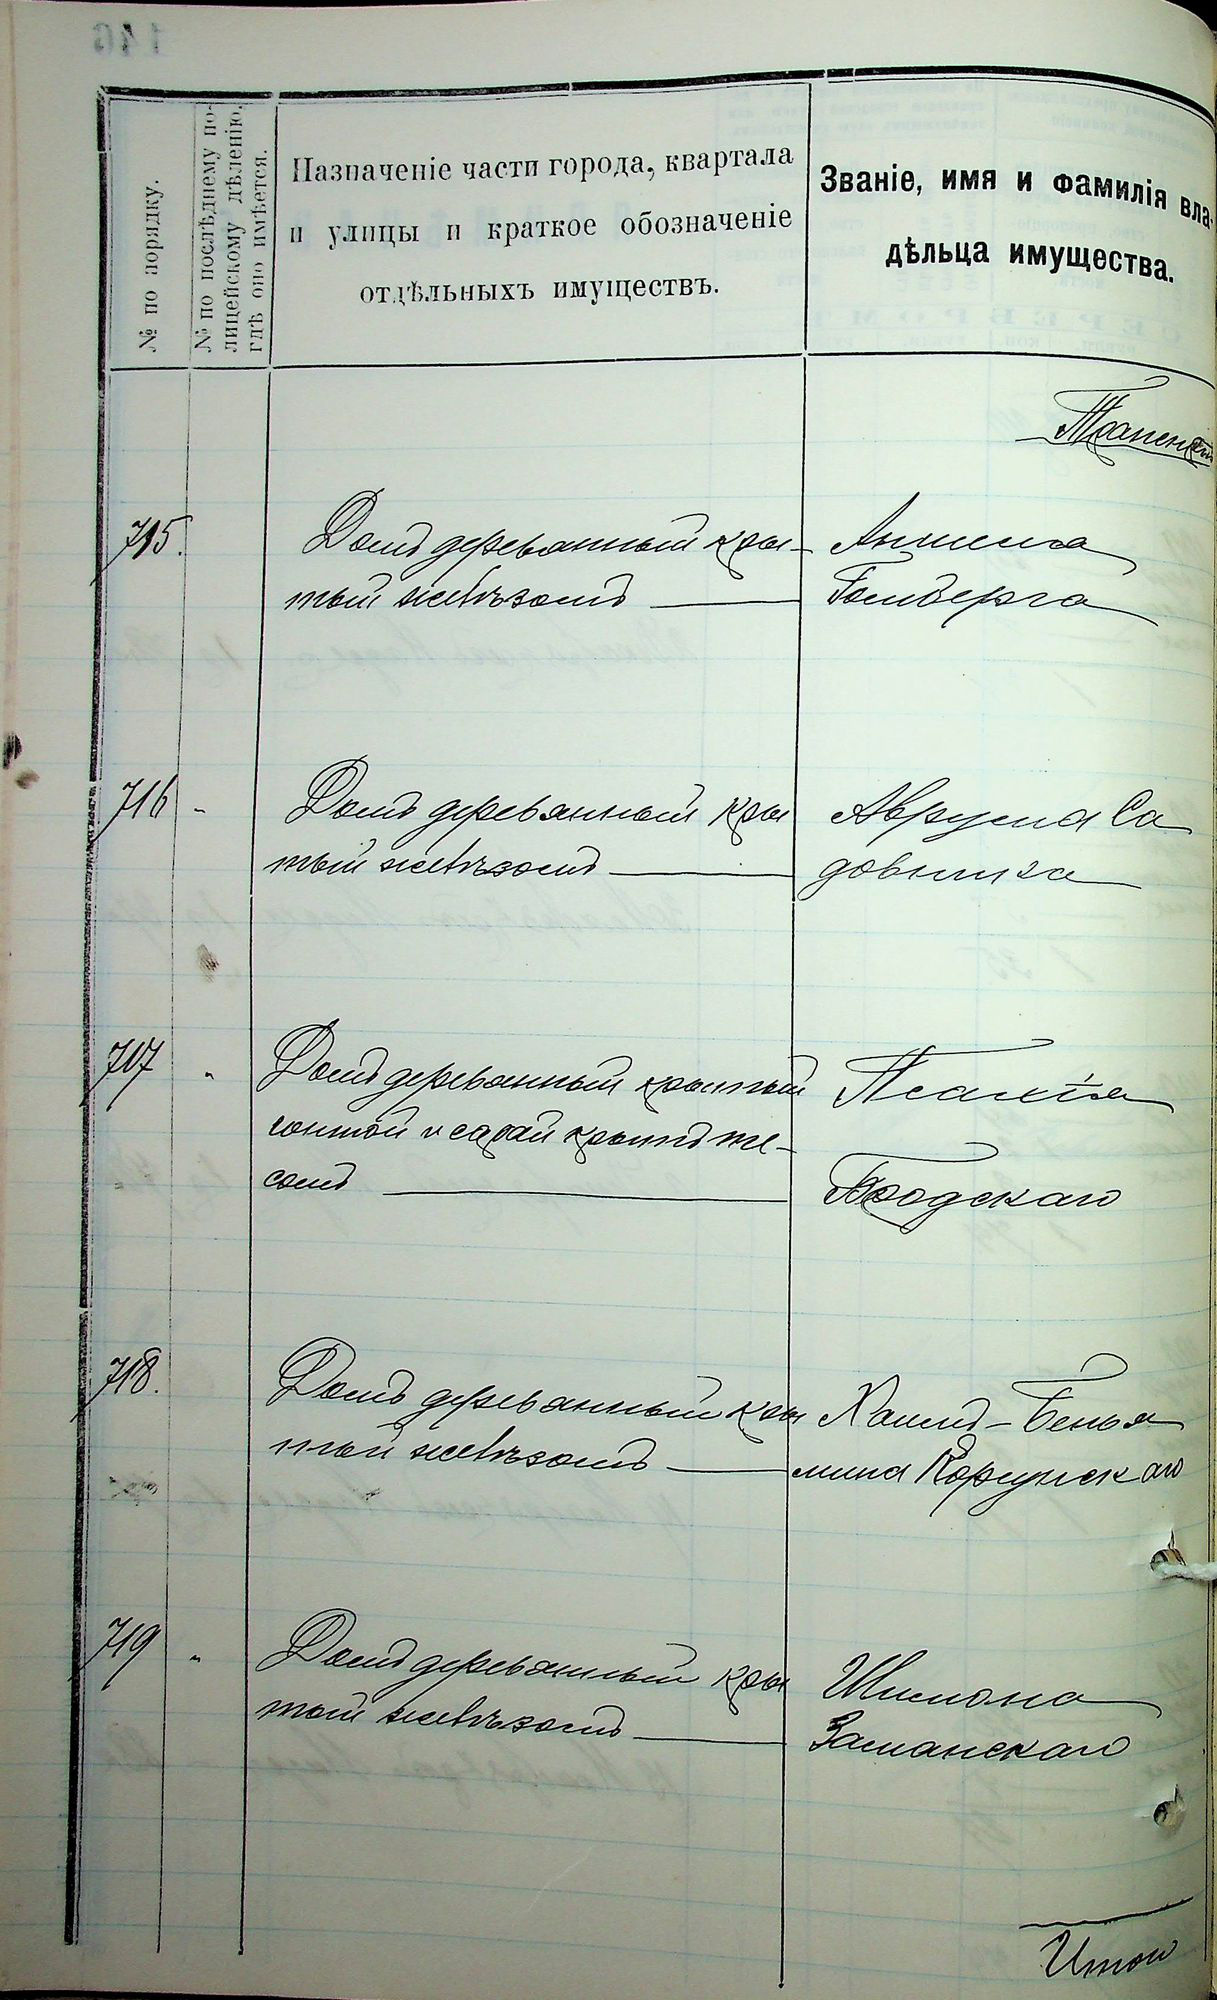 № по порядку.
№ по послѣднему по-
лицейскому дѣленію,
гдѣ оно имѣется.
Назначеніе части города, квартала
и улицы и краткое обозначеніе
отдѣльныхъ имуществъ.
Званіе, имя и фамилія вла-
дѣльца имущества.
Транспортъ
715.
Домъ деревянный кры-
тый желѣзомъ
Аншеля
Гольдберга
716 "
Домъ деревянный кры
тый желѣзомъ
Аврума Са
довника
717 "
Домъ деревянный крытый
гонтой и сарай крытъ те-
сомъ
Бродскаго
718.
Домъ деревянный кры
тый желѣзомъ
Хаимъ-Бенья
мина Корсунскаго
719 "
Домъ деревянный кры
тый желѣзомъ
Шимона
Заманскаго
Итого